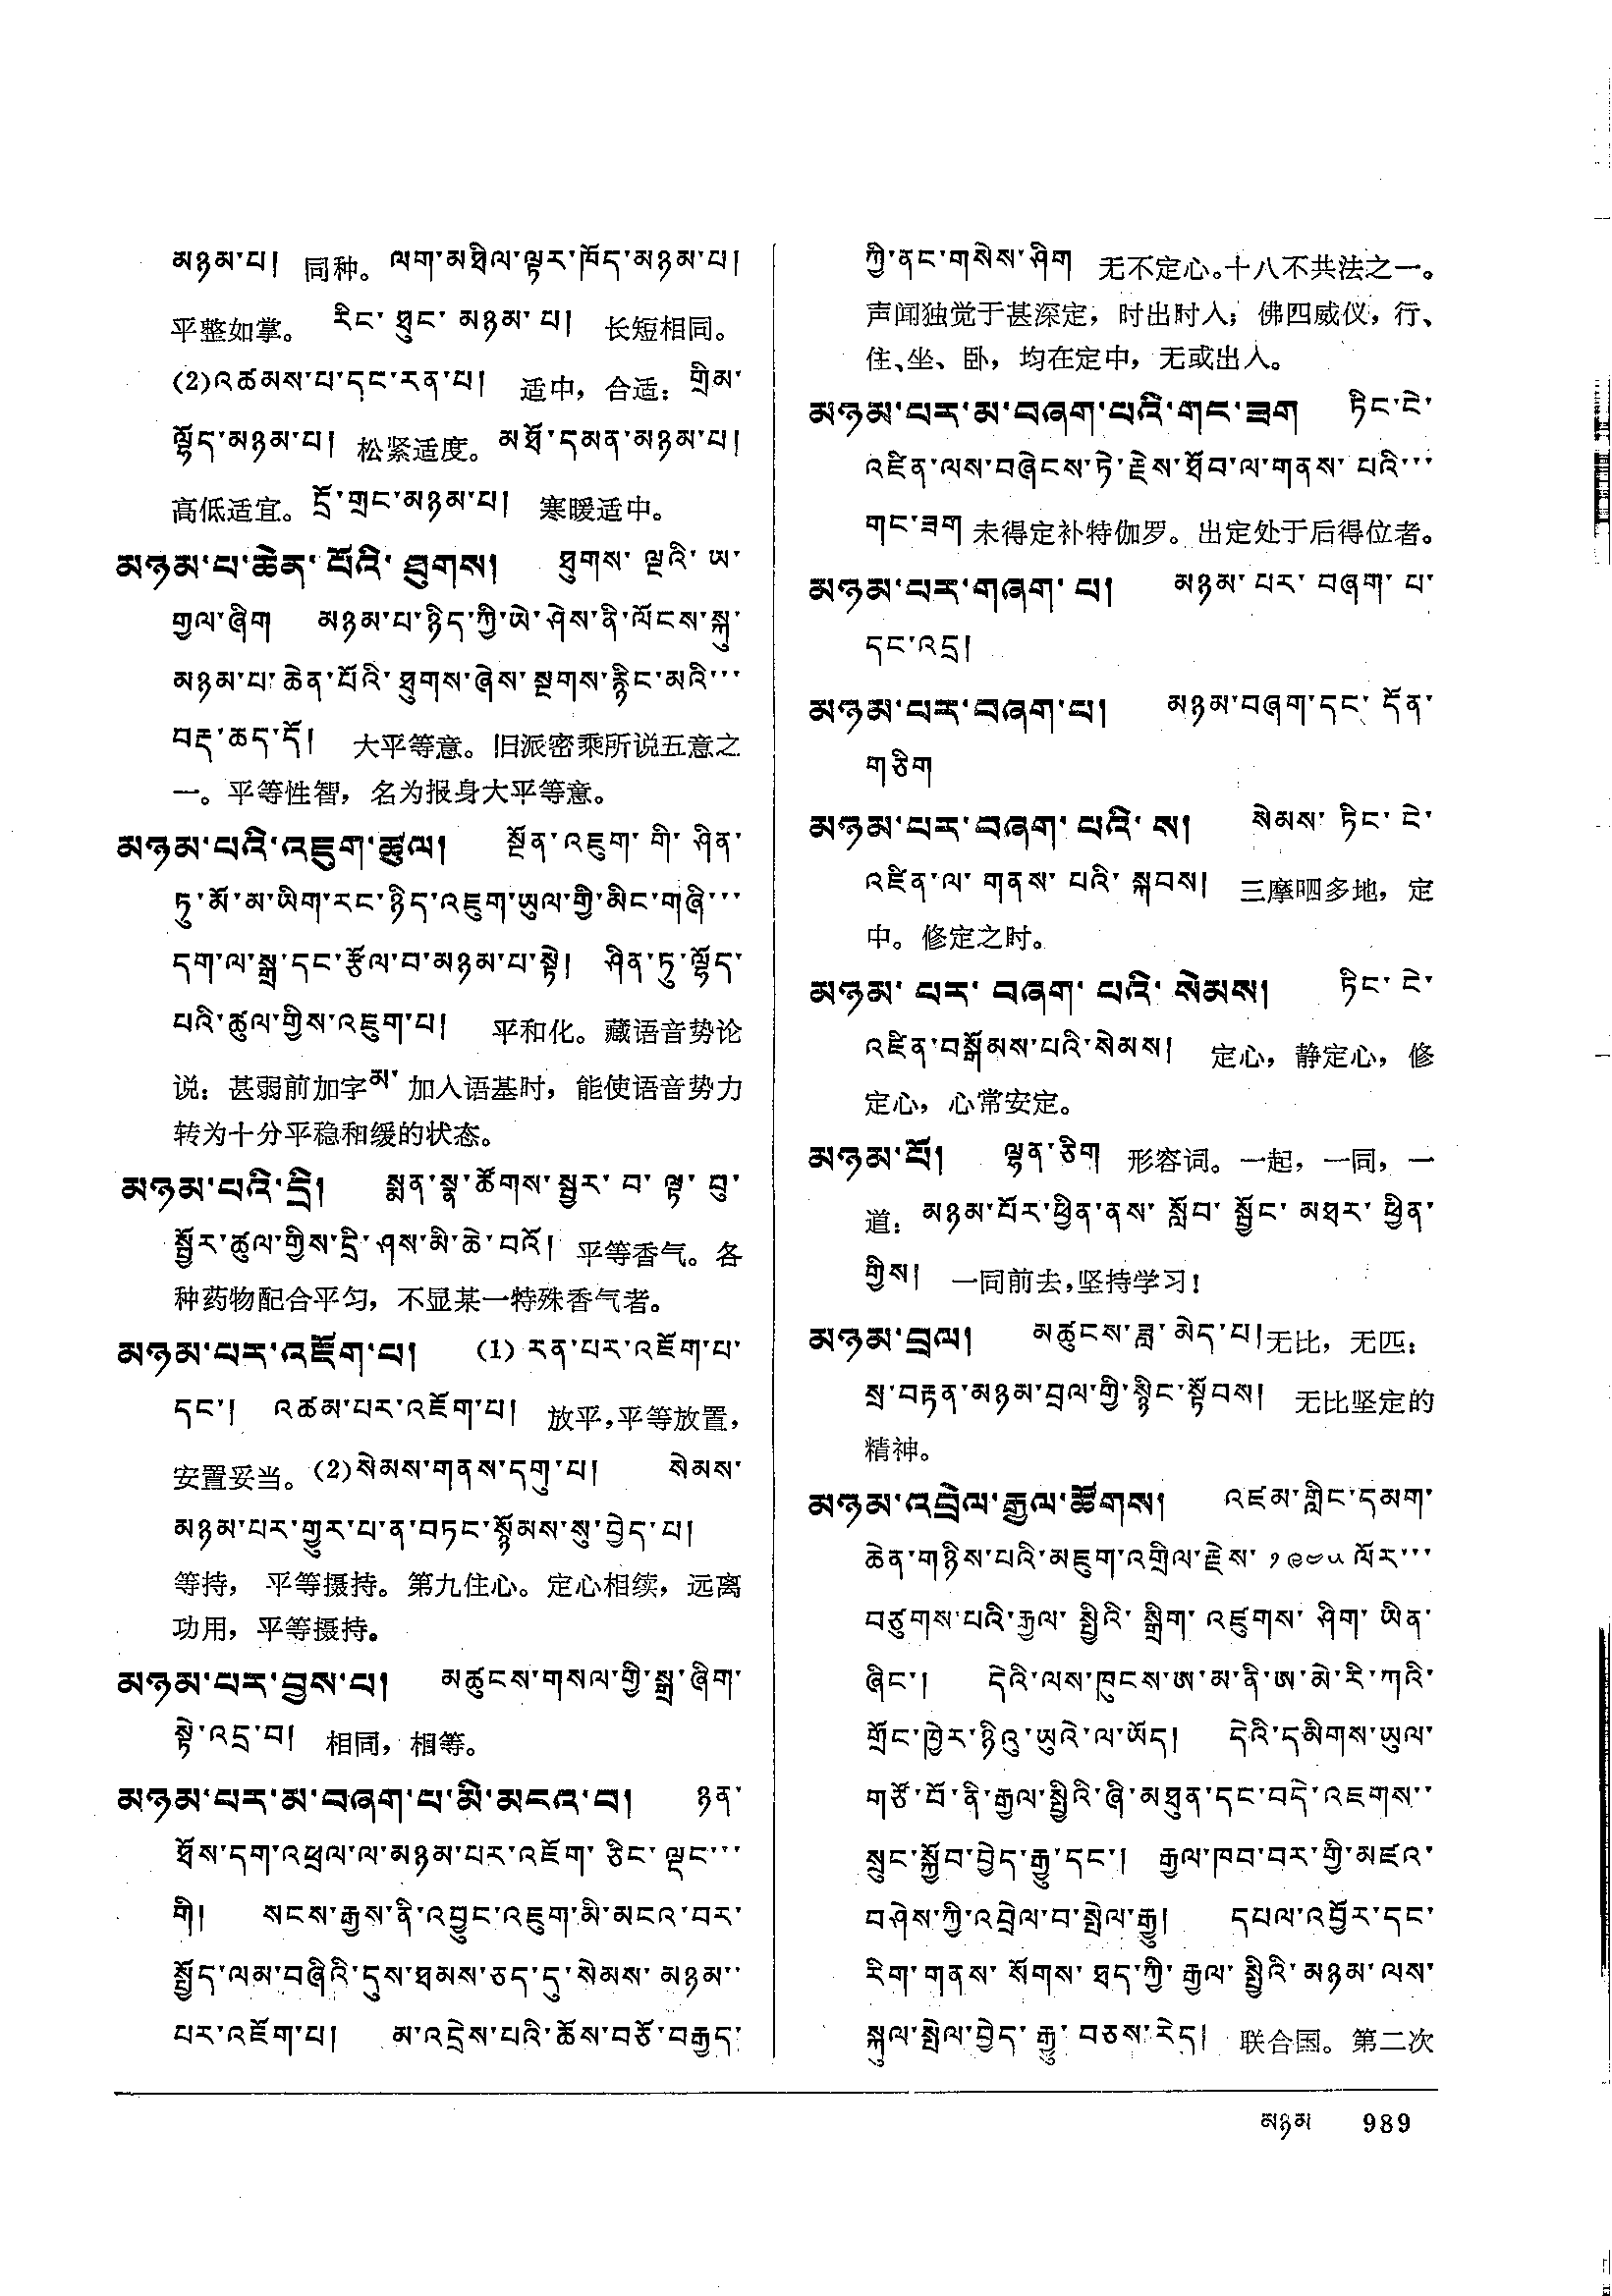 མཉམ་པ། 同种。 ལག་མཐིལ་ལྟར་ཁོད་མཉམ་པ།
平整如掌。 རིང་ཐུང་མཉམ་པ། 长短相同。
(2)འཚམས་པ་དང་རན་པ། 适中，合适： གྲིམ་
ལྷོད་མཉམ་པ། 松紧适度。 མཐོ་དམན་མཉམ་པ།
高低适宜。 དྲོ་གྲང་མཉམ་པ། 寒暖适中。
མཉམ་པ་ཆེན་པོའི་ཐུགས། ཐུགས་ལྔའི་ཡ་
གྱལ་ཞིག མཉམ་པ་ཉིད་ཀྱི་ཡེ་ཤེས་ནི་ལོངས་སྐུ་
མཉམ་པ་ཆེན་པོའི་ཐུགས་ཞེས་སྔགས་རྙིང་མའི་་་
བརྡ་ཆད་དོ། 大平等意。旧派密乘所说五意之
一。平等性智，名为报身大平等意。
མཉམ་པའི་འཇུག་ཚུལ། སྔོན་འཇུག་གི་ཤིན་
ཏུ་མོ་མ་ཡིག་རང་ཉིད་འཇུག་ཡུལ་གྱི་མིང་གཞི་་་
དག་ལ་སྒྲ་དང་རྩོལ་བ་མཉམ་པ་སྟེ། ཤིན་ཏུ་ལྷོད་
པའི་ཚུལ་གྱིས་འཇུག་པ། 平和化。藏语音势论
说：甚弱前加字མ་加入语基时，能使语音势力
转为十分平稳和缓的状态。
མཉམ་པའི་དྲི། སྨན་སྣ་ཚོགས་སྦྱར་བ་ལྟ་བུ་
སྦྱོར་ཚུལ་གྱིས་དྲི་ཤས་མི་ཆེ་བའོ། 平等香气。各
种药物配合平匀，不显某一特殊香气者。
མཉམ་པར་འཇོག་པ། (1)རན་པར་འཇོག་པ་
དང་། འཚམ་པར་འཇོག་པ། 放平，平等放置，
安置妥当。(2)སེམས་གནས་དགུ་པ། སེམས་
མཉམ་པར་གྱུར་པ་ན་བཏང་སྙོམས་སུ་བྱེད་པ།
等持， 平等摄持。第九住心。定心相续，远离
功用，平等摄持。
མཉམ་པར་བྱས་པ། མཚུངས་གསལ་གྱི་སྒྲ་ཞིག་
སྟེ་འདྲ་བ། 相同，相等。
མཉམ་པར་མ་བཞག་པ་མི་མངའ་བ། ཉན་
ཐོས་དག་འཕྲལ་ལ་མཉམ་པར་འཇོག་ཅིང་ལྡང་་་
གི། སངས་རྒྱས་ནི་འབྱུང་འཇུག་མི་མངའ་བར་
སྤྱོད་ལམ་བཞིའི་དུས་ཐམས་ཅད་དུ་སེམས་མཉམ་་
པར་འཇོག་པ། མ་འདྲེས་པའི་ཆོས་བཅོ་བརྒྱད་
ཀྱི་ནང་གསེས་ཤིག 无不定心。十八不共法之一。
声闻独觉于甚深定，时出时入；佛四威仪，行、
住、坐、卧，均在定中，无或出入。
མཉམ་པར་མ་བཞག་པའི་གང་ཟག ཏིང་ངེ་
འཛིན་ལས་བཞེངས་ཏེ་རྗེས་ཐོབ་ལ་གནས་པའི་་་
གང་ཟག 未得定补特伽罗。出定处于后得位者。
མཉམ་པར་གཞག་པ། མཉམ་པར་བཞག་པ་
དང་འདྲ།
མཉམ་པར་བཞག་པ། མཉམ་བཞག་དང་དོན་
གཅིག
མཉམ་པར་བཞག་པའི་ས། སེམས་ཏིང་ངེ་
འཛིན་ལ་གནས་པའི་སྐབས། 三摩呬多地，定
中。修定之时。
མཉམ་པར་བཞག་པའི་སེམས། ཏིང་ངེ་
འཛིན་བསྒོམས་པའི་སེམས། 定心，静定心，修
定心，心常安定。
མཉམ་པོ། ལྷན་ཅིག 形容词。一起，一同，一
道： མཉམ་པོར་ཕྱིན་ནས་སློབ་སྦྱོང་མཐར་ཕྱིན་
གྱིས། 一同前去，坚持学习！
མཉམ་བྲལ། མཚུངས་ཟླ་མེད་པ།无比，无匹：
སྲ་བརྟན་མཉམ་བྲལ་གྱི་སྙིང་སྟོབས། 无比坚定的
精神。
མཉམ་འབྲེལ་རྒྱལ་ཚོགས། འཛམ་གླིང་དམག་
ཆེན་གཉིས་པའི་མཇུག་འགྲིལ་རྗེས་ ༡༩༤༥ ལོར་་་
བཙུགས་པའི་རྒྱལ་སྤྱིའི་སྒྲིག་འཛུགས་ཤིག་ཡིན་
ཞིང་། དེའི་ལས་ཁུངས་ཨ་མ་ནི་ཨ་མེ་རི་ཀའི་
གྲོང་ཁྱེར་ཉིའུ་ཡུའེ་ལ་ཡོད། དེའི་དམིགས་ཡུལ་
གཙོ་བོ་ནི་རྒྱལ་སྤྱིའི་ཞི་མཐུན་དང་བདེ་འཇགས་་
སྲུང་སྐྱོབ་བྱེད་རྒྱུ་དང་། རྒྱལ་ཁབ་བར་གྱི་མཛའ་
བཤེས་ཀྱི་འབྲེལ་བ་སྤེལ་རྒྱུ། དཔལ་འབྱོར་དང་
རིག་གནས་སོགས་ཐད་ཀྱི་རྒྱལ་སྤྱིའི་མཉམ་ལས་
སྐུལ་སྤེལ་བྱེད་རྒྱུ་བཅས་རེད། 联合国。第二次
མཉམ 989